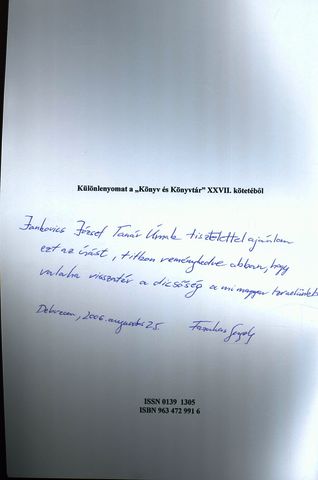 Különlenyomat a „Könyv és Könyvtár” XXVII. kötetéből
Jankovics József Tanár Úrnak tisztelettel ajánlom
ezt az írást, titkon reménykedve abban, hogy
valaha visszatér a dicsőség a mi magyar Izraelünkbe
Debrecen, 2006. augusztus 25.
ISSN 0139 1305
ISBN 963 472 991 6